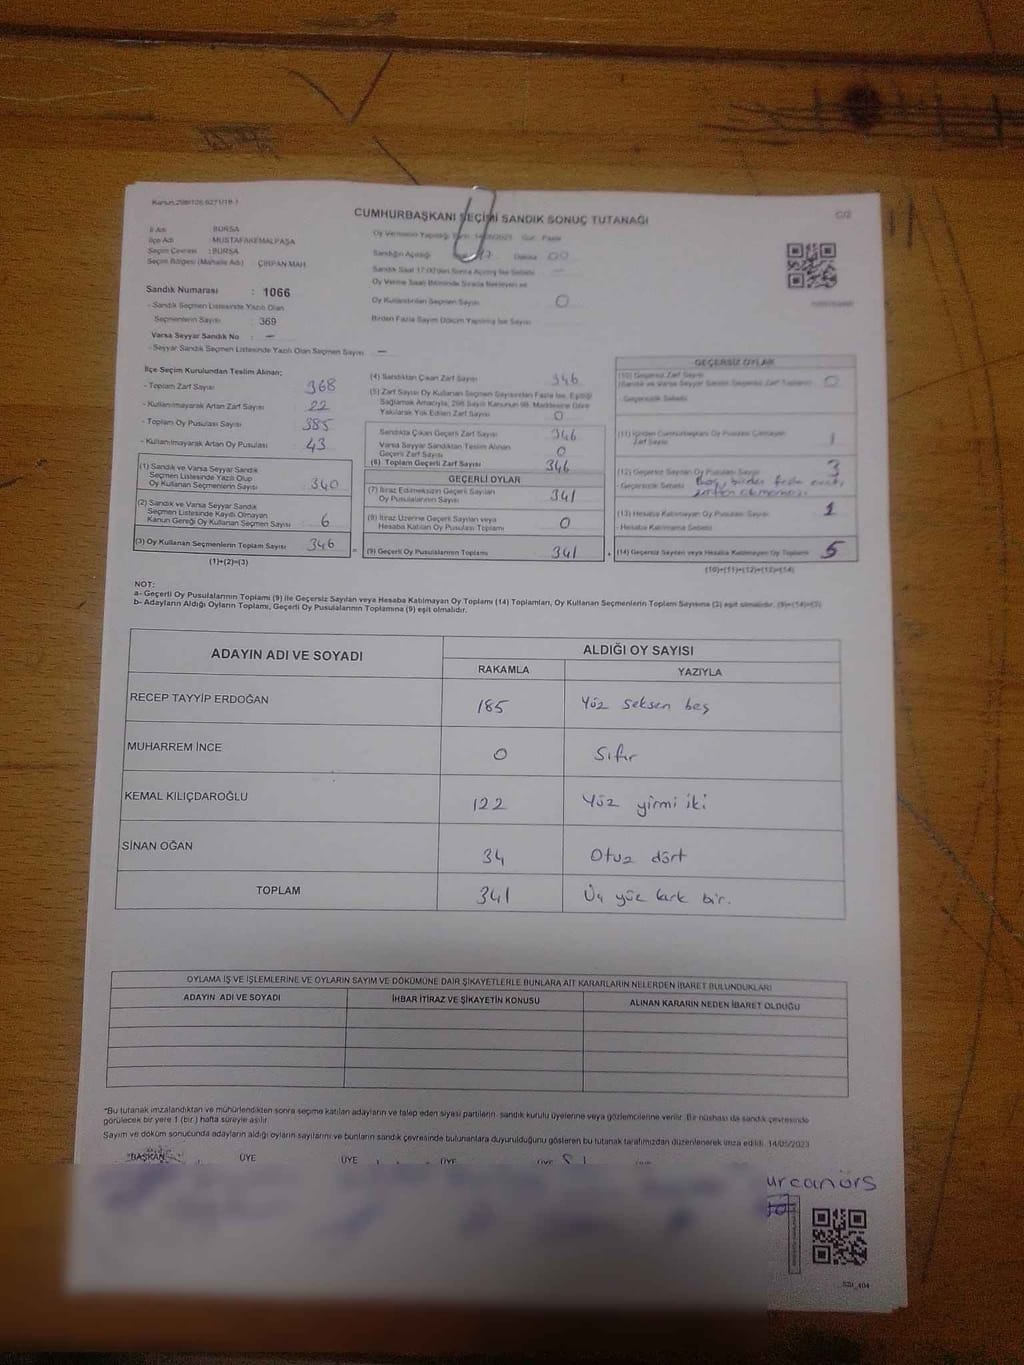 Kanun:298/105,6271/18-1
CUMHURBAŞKANI SEÇİMİ SANDIK SONUÇ TUTANAĞI
C/2
İl Adı : BURSA
İlçe Adı : MUSTAFAKEMALPAŞA
Seçim Çevresi : BURSA
Seçim Bölgesi (Mahalle Adı) ÇIRPAN MAH.
Sandık Numarası : 1066
- Sandık Seçmen Listesinde Yazılı Olan
Seçmenlerin Sayısı : 369
Varsa Seyyar Sandık No : –
- Seyyar Sandık Seçmen Listesinde Yazılı Olan Seçmen Sayısı –
Oy Vermenin Yapıldığı Tarih: 14/05/2023 Gün: Pazar
Sandığın Açıldığı 17 Dakika 00
Sandık Saat 17.00'den Sonra Açılmış İse Sebebi –
Oy Verme Saati Bitiminde Sırada Bekleyen ve
Oy Kullandırılan Seçmen Sayısı 0
Birden Fazla Sayım Döküm Yapılmış İse Sayısı
İlçe Seçim Kurulundan Teslim Alınan;
- Toplam Zarf Sayısı 368
- Kullanılmayarak Artan Zarf Sayısı 22
- Toplam Oy Pusulası Sayısı 385
- Kullanılmayarak Artan Oy Pusulası 43
(1) Sandık ve Varsa Seyyar Sandık
Seçmen Listesinde Yazılı Olup
Oy Kullanan Seçmenlerin Sayısı 340
(2) Sandık ve Varsa Seyyar Sandık
Seçmen Listesinde Kayıtlı Olmayan
Kanun Gereği Oy Kullanan Seçmen Sayısı 6
(3) Oy Kullanan Seçmenlerin Toplam Sayısı 346
(1)+(2)=(3)
(4) Sandıktan Çıkan Zarf Sayısı 346
(5) Zarf Sayısı Oy Kullanan Seçmen Sayısından Fazla İse, Eşitliği
Sağlamak Amacıyla, 298 Sayılı Kanunun 98. Maddesine Göre
Yakılarak Yok Edilen Zarf Sayısı 0
Sandıkta Çıkan Geçerli Zarf Sayısı 346
Varsa Seyyar Sandıktan Teslim Alınan
Geçerli Zarf Sayısı 0
(6) Toplam Geçerli Zarf Sayısı 346
GEÇERLİ OYLAR
(7) İtiraz Edilmeksizin Geçerli Sayılan
Oy Pusulalarının Sayısı 341
(8) İtiraz Üzerine Geçerli Sayılan veya
Hesaba Katılan Oy Pusulası Toplamı 0
= (9) Geçerli Oy Pusulalarının Toplamı 341
GEÇERSİZ OYLAR
(10) Geçersiz Zarf Sayısı 0
- Geçersizlik Sebebi
(11) İçinden Cumhurbaşkanı Oy Pusulası Çıkmayan
Zarf Sayısı 1
(12) Geçersiz Sayılan Oy Pusulası Sayısı 3
- Geçersizlik Sebebi Boş, birden fazla
(13) Hesaba Katılmayan Oy Pusulası Sayısı 1
- Hesaba Katılmama Sebebi
+ (14) Geçersiz Sayılan veya Hesaba Katılmayan Oy Toplamı 5
(10)+(11)+(12)+(13)=(14)
NOT:
a- Geçerli Oy Pusulalarının Toplamı (9) ile Geçersiz Sayılan veya Hesaba Katılmayan Oy Toplamı (14) Toplamları, Oy Kullanan Seçmenlerin Toplam Sayısına (3) eşit olmalıdır. (9)+(14)=(3)
b- Adayların Aldığı Oyların Toplamı, Geçerli Oy Pusulalarının Toplamına (9) eşit olmalıdır.
ADAYIN ADI VE SOYADI ALDIĞI OY SAYISI
RAKAMLA YAZIYLA
RECEP TAYYİP ERDOĞAN 185 Yüz seksen beş
MUHARREM İNCE 0 Sıfır
KEMAL KILIÇDAROĞLU 122 Yüz yirmi iki
SİNAN OĞAN 34 Otuz dört
TOPLAM 341 Üç yüz kırk bir.
OYLAMA İŞ VE İŞLEMLERİNE VE OYLARIN SAYIM VE DÖKÜMÜNE DAİR ŞİKAYETLERLE BUNLARA AİT KARARLARIN NELERDEN İBARET BULUNDUKLARI
ADAYIN ADI VE SOYADI İHBAR İTİRAZ VE ŞİKAYETİN KONUSU ALINAN KARARIN NEDEN İBARET OLDUĞU
*Bu tutanak imzalandıktan ve mühürlendikten sonra seçime katılan adayların ve talep eden siyasi partilerin sandık kurulu üyelerine veya gözlemcilerine verilir. Bir nüshası da sandık çevresinde
görülecek bir yere 1 (bir) hafta süreyle asılır.
Sayım ve döküm sonucunda adayların aldığı oyların sayılarını ve bunların sandık çevresinde bulunanlara duyurulduğunu gösteren bu tutanak tarafımızdan düzenlenerek imza edildi. 14/05/2023
*BAŞKAN ÜYE ÜYE ÜYE ÜYE
urcanörs